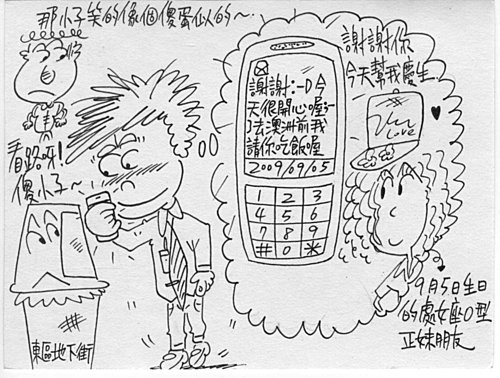 那小子笑的像個傻蛋似的~
看路呀!
傻小子~
東區地下街
謝謝:-D今
天很開心喔!
去澳洲前我
請你吃飯喔
2009/09/05
1 2 3
4 5 6
7 8 9
# 0 *
謝謝你
今天幫我慶生
Love
9月5日生日
的處女座O型
正妹朋友